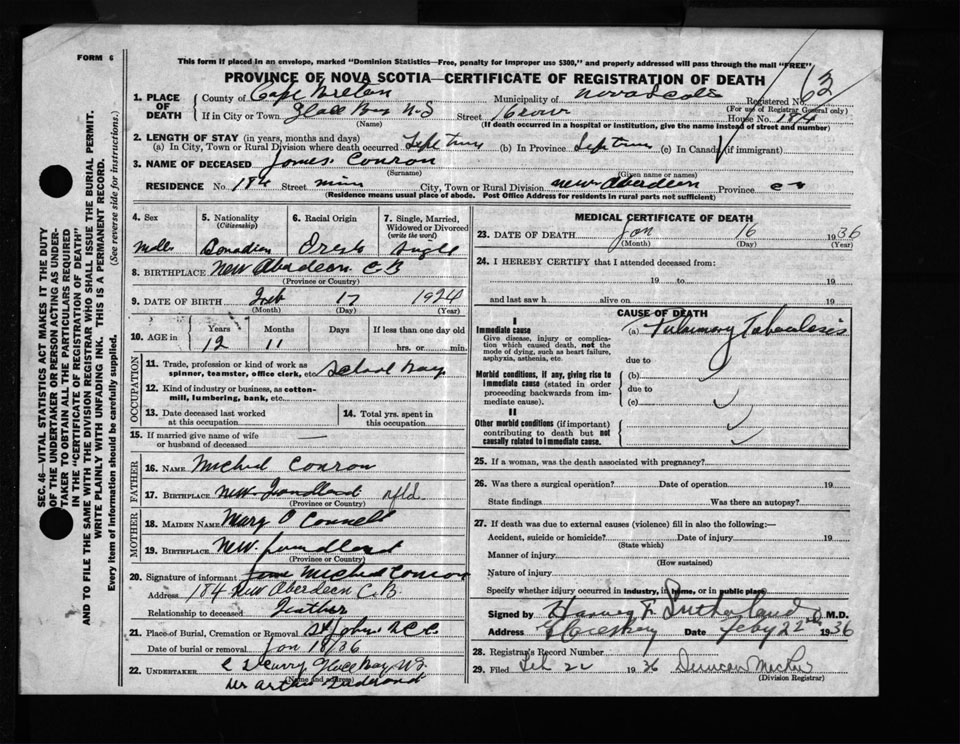 FORM 6
This form if placed in an envelope, marked "Dominion Statistics—Free, penalty for improper use $300," and properly addressed will pass through the mail "FREE"
PROVINCE OF NOVA SCOTIA—CERTIFICATE OF REGISTRATION OF DEATH
63
1. PLACE OF DEATH
County of Cape Breton Municipality of Nova Scotia Registered No.
(For use of Registrar General only)
If in City or Town Glace Bay N-S Street House No. 184
(Name) (If death occurred in a hospital or institution, give the name instead of street and number)
2. LENGTH OF STAY (in years, months and days)
(a) In City, Town or Rural Division where death occurred (b) In Province (c) In Canada (if immigrant)
3. NAME OF DECEASED James Conron
(Surname) (Given name or names)
RESIDENCE No. 184 Street City, Town or Rural Division New Aberdeen Province
(Residence means usual place of abode. Post Office Address for residents in rural parts not sufficient)
SEC. 46—VITAL STATISTICS ACT MAKES IT THE DUTY
OF THE UNDERTAKER OR PERSON ACTING AS UNDER-
TAKER TO OBTAIN ALL THE PARTICULARS REQUIRED
IN THE "CERTIFICATE OF REGISTRATION OF DEATH"
AND TO FILE THE SAME WITH THE DIVISION REGISTRAR WHO SHALL ISSUE THE BURIAL PERMIT.
WRITE PLAINLY WITH UNFADING INK. THIS IS A PERMANENT RECORD.
Every item of information should be carefully supplied. (See reverse side for instructions.)
4. Sex 5. Nationality (Citizenship) 6. Racial Origin 7. Single, Married, Widowed or Divorced (write the word)
Male Canadian Single
8. BIRTHPLACE New Aberdeen C B
(Province or Country)
9. DATE OF BIRTH Feb 17 1924
(Month) (Day) (Year)
10. AGE in Years Months Days If less than one day old
12 11 hrs. or min.
OCCUPATION
11. Trade, profession or kind of work as spinner, teamster, office clerk, etc. School Boy
12. Kind of industry or business, as cotton-mill, lumbering, bank, etc.
13. Date deceased last worked at this occupation 14. Total yrs. spent in this occupation
15. If married give name of wife or husband of deceased —
FATHER
16. NAME Micheal Conron
17. BIRTHPLACE New Foundland nfld.
(Province or Country)
MOTHER
18. MAIDEN NAME Mary O Connell
19. BIRTHPLACE New foundland
(Province or Country)
20. Signature of informant Micheal Conron
Address 184 New Aberdeen C.B
Relationship to deceased Feather
21. Place of Burial, Cremation or Removal St John's
Date of burial or removal Jan 18/36
22. UNDERTAKER Curry Glace Bay
(Name and address)
MEDICAL CERTIFICATE OF DEATH
23. DATE OF DEATH Jan 16 1936
(Month) (Day) (Year)
24. I HEREBY CERTIFY that I attended deceased from:
19 to 19
and last saw h alive on 19
CAUSE OF DEATH
I
Immediate cause (a) Pulmonary Tuberculosis
Give disease, injury or complication which caused death, not the mode of dying, such as heart failure, asphyxia, asthenia, etc.
due to
Morbid conditions, if any, giving rise to immediate cause (stated in order proceeding backwards from immediate cause).
(b)
due to
(c)
II
Other morbid conditions (if important) contributing to death but not causally related to immediate cause.
25. If a woman, was the death associated with pregnancy?
26. Was there a surgical operation? Date of operation 19
State findings Was there an autopsy?
27. If death was due to external causes (violence) fill in also the following:—
Accident, suicide or homicide? Date of injury 19
(State which)
Manner of injury
(How sustained)
Nature of injury
Specify whether injury occurred in industry, in home, or in public place
Signed by Harvey F. Sutherland M.D.
Address Glace Bay Date Feby 22nd 1936
28. Registrar's Record Number
29. Filed Feb 22 1936 Duncan
(Division Registrar)